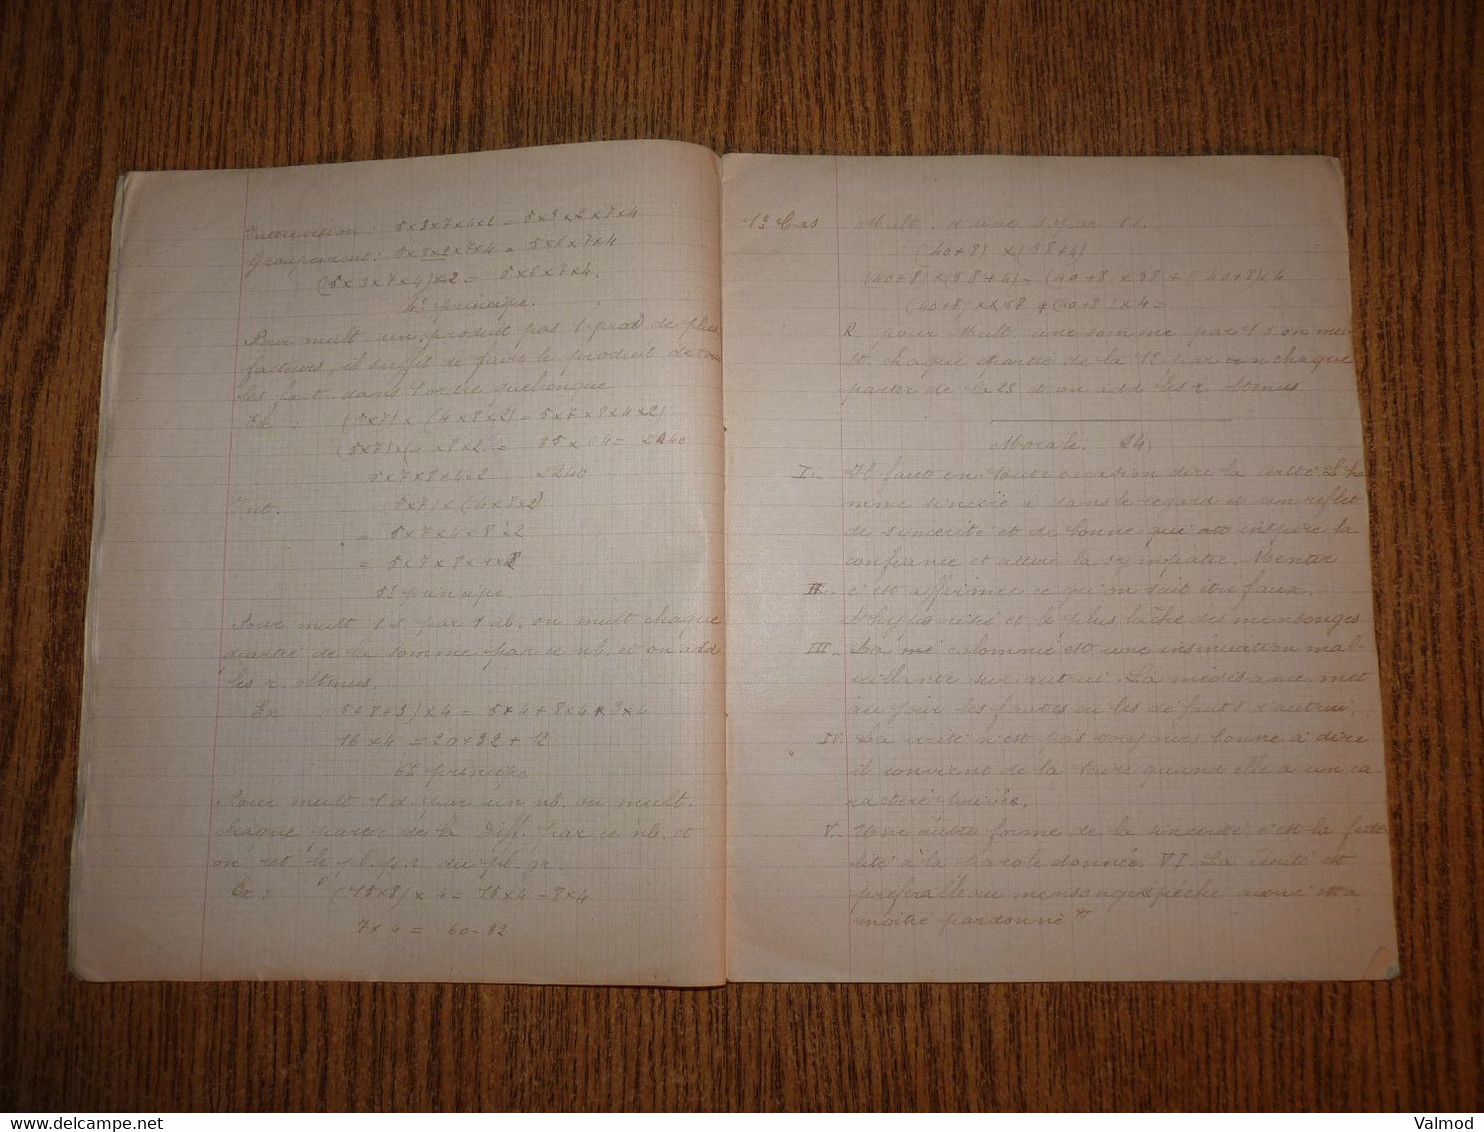 Interversion 5×3×7×4×2 = 5×3×2×7×4
Groupement: 5×3×2×7×4 = 5×6×7×4
(5×3×7×4)×2 = 5×6×7×4.
4e principe.
Pour mult. un produit pas 1 prod de plus
facteurs, il suffit de faire le produit de tous
les fact. dans l'ordre quelconque
Ex : (5×7) × (4×8×2) = 5×7×8×4×2)
(5×7)×(4×8×2 = 35×64 = 2240
5×7×8×4×2 2240
Int. (5×7)×(4×8×2)
= 5×7×4×8×2
= 5×7×8×4×2
5e principe.
Pour mult 1 s. par 1 nb. on mult chaque
partie de la somme par ce nb. et on add
les r. obtenus.
Ex (5+8+3)×4 = 5×4+8×4+3×4
16×4 = 20+32+12
6e principe
Pour mult 1 d. par un nb. on mult.
chaque partie de la diff. par ce nb. et
on ret. le pl. p. r. du pl. gr.
Ex : (15×8)×4 = 15×4 - 8×4
7×4 = 60-32
1e Cas Mult. d'une s. par 1 s.
(40+8) × (58+4)
(40+8)×(58+4) = (40+8)×58 + (40+8)×4
(40+8)×58 + (40+8)×4 =
R. pour Mult. une somme par 1 s. on mul-
t. chaque partie de la 1e par chaque
partie de la 2e et on add les r. obtenus
Morale. 24.
I.- Il faut en toute occasion dire la vérité. L'ho
mme sincère a dans le regard un reflet
de sincérité et de bonne qui inspire la
confiance et attire la sympatie. Menter
II.- c'est affirmer ce qu'on sait être faux.
L'hypocrisie et le plus lâche des mensonges
III.- La calomnie est une insinuation mal-
veillante sur autrui. La médisance met
au jour les fautes ou les défauts d'autrui.
IV. La vérité n'est pas toujours bonne à dire
il convient de la taire quand elle a un ca-
ractère privée.
V.- Une autre forme de la sincérité, c'est la fide
lité à la parole donnée. VI. La vérité est
préférable au mensonge péché avoué est a
moitié pardonné "
Valmod